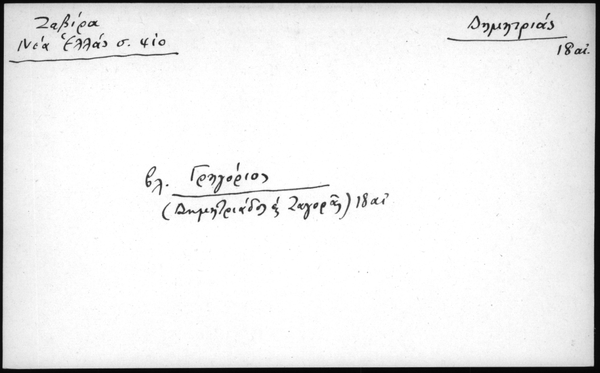 Ζαβίρα
Νέα Ἑλλάς σ. 410
Δημητριάς
18 αἰ.
βλ. Γρηγόριος
(Δημητριάδος & Ζαγορᾶς) 18 αἰ